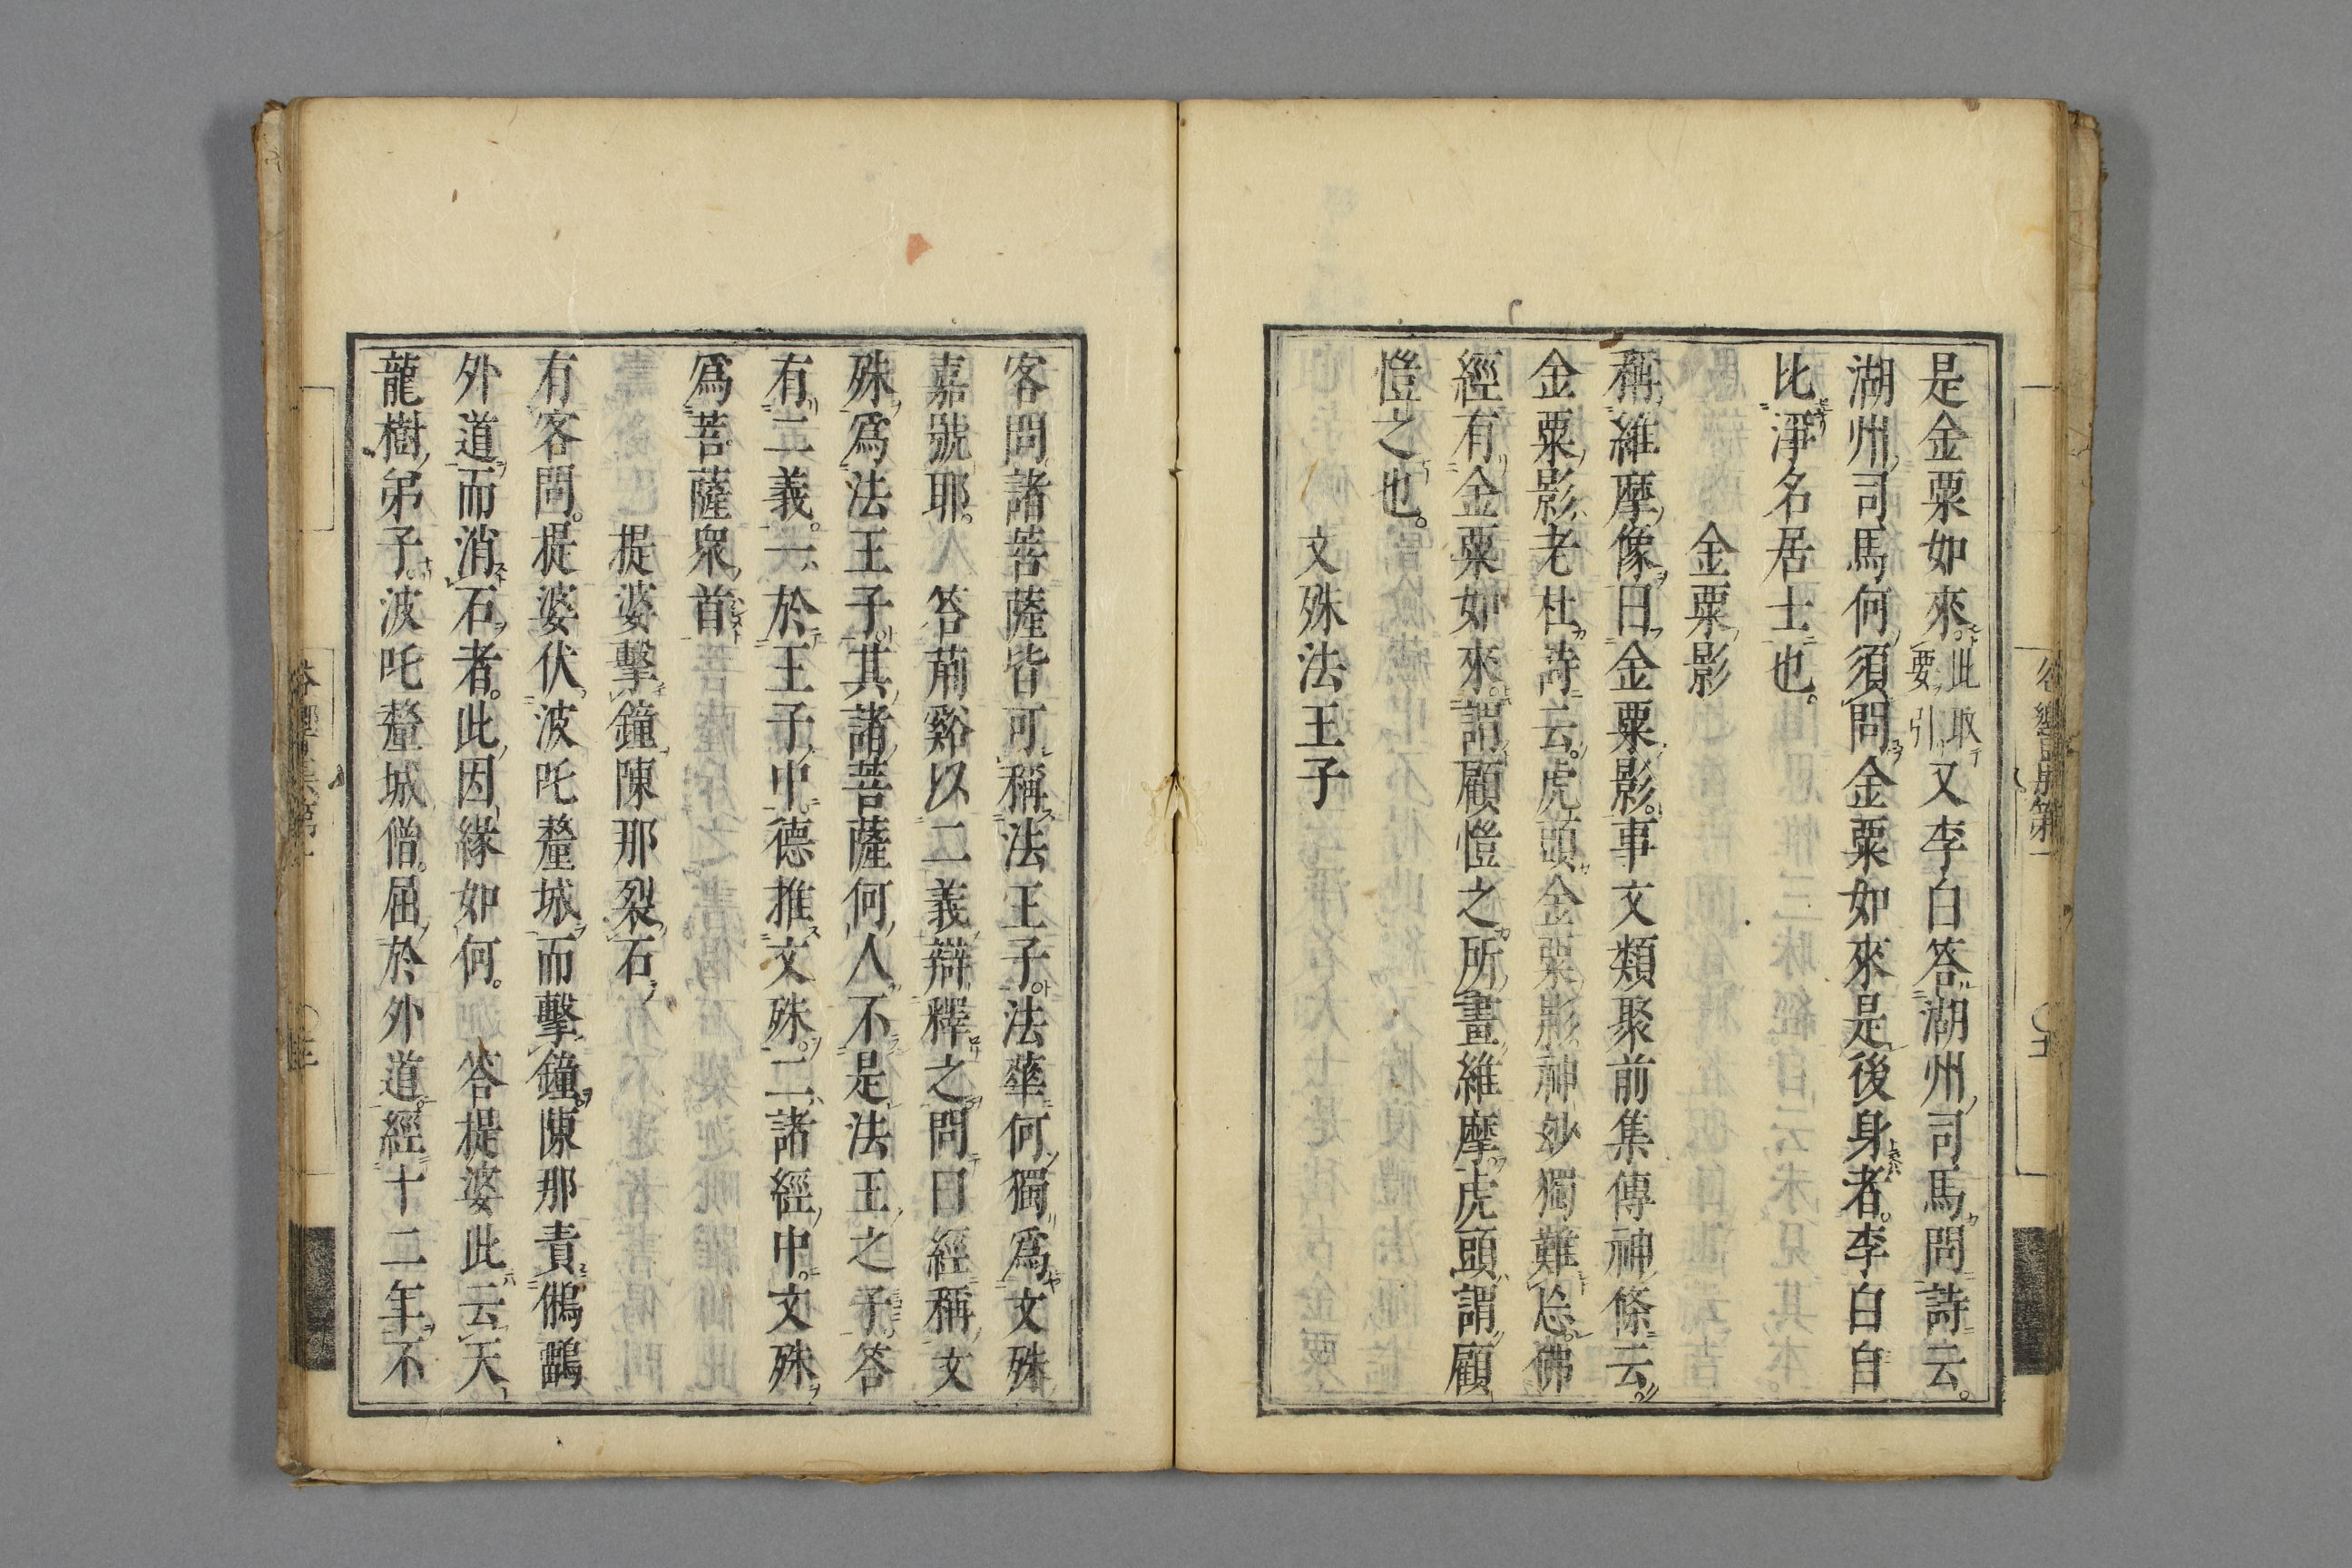 是金粟如來此取要引又李白答湖州司馬問詩云。
湖州司馬何須問金粟如來是後身者。李白自
比淨名居士也。
金粟影
稱維摩像曰金粟影。事文類聚前集傳神條云。
金粟影老杜詩云。虎頭金粟影。神妙獨難忘。佛
經有金粟如來。謂顧愷之所畫維摩虎頭謂顧
愷之也。
文殊法王子
客問諸菩薩皆可稱法王子。法華何獨爲文殊
嘉號耶。 答荊谿以二義辯釋之問曰經稱文
殊爲法王子。其諸菩薩何人不是法王之子。答
有二義。一於王子中德推文殊。二諸經中。文殊
爲菩薩衆首
提婆擊鐘陳那裂石
有客問。提婆伏波吒釐城而擊鐘。陳那責鵂鶹
外道而消石者。此因緣如何。 答提婆此云天
龍樹弟子。波吒釐城僧。屈於外道。經十二年不